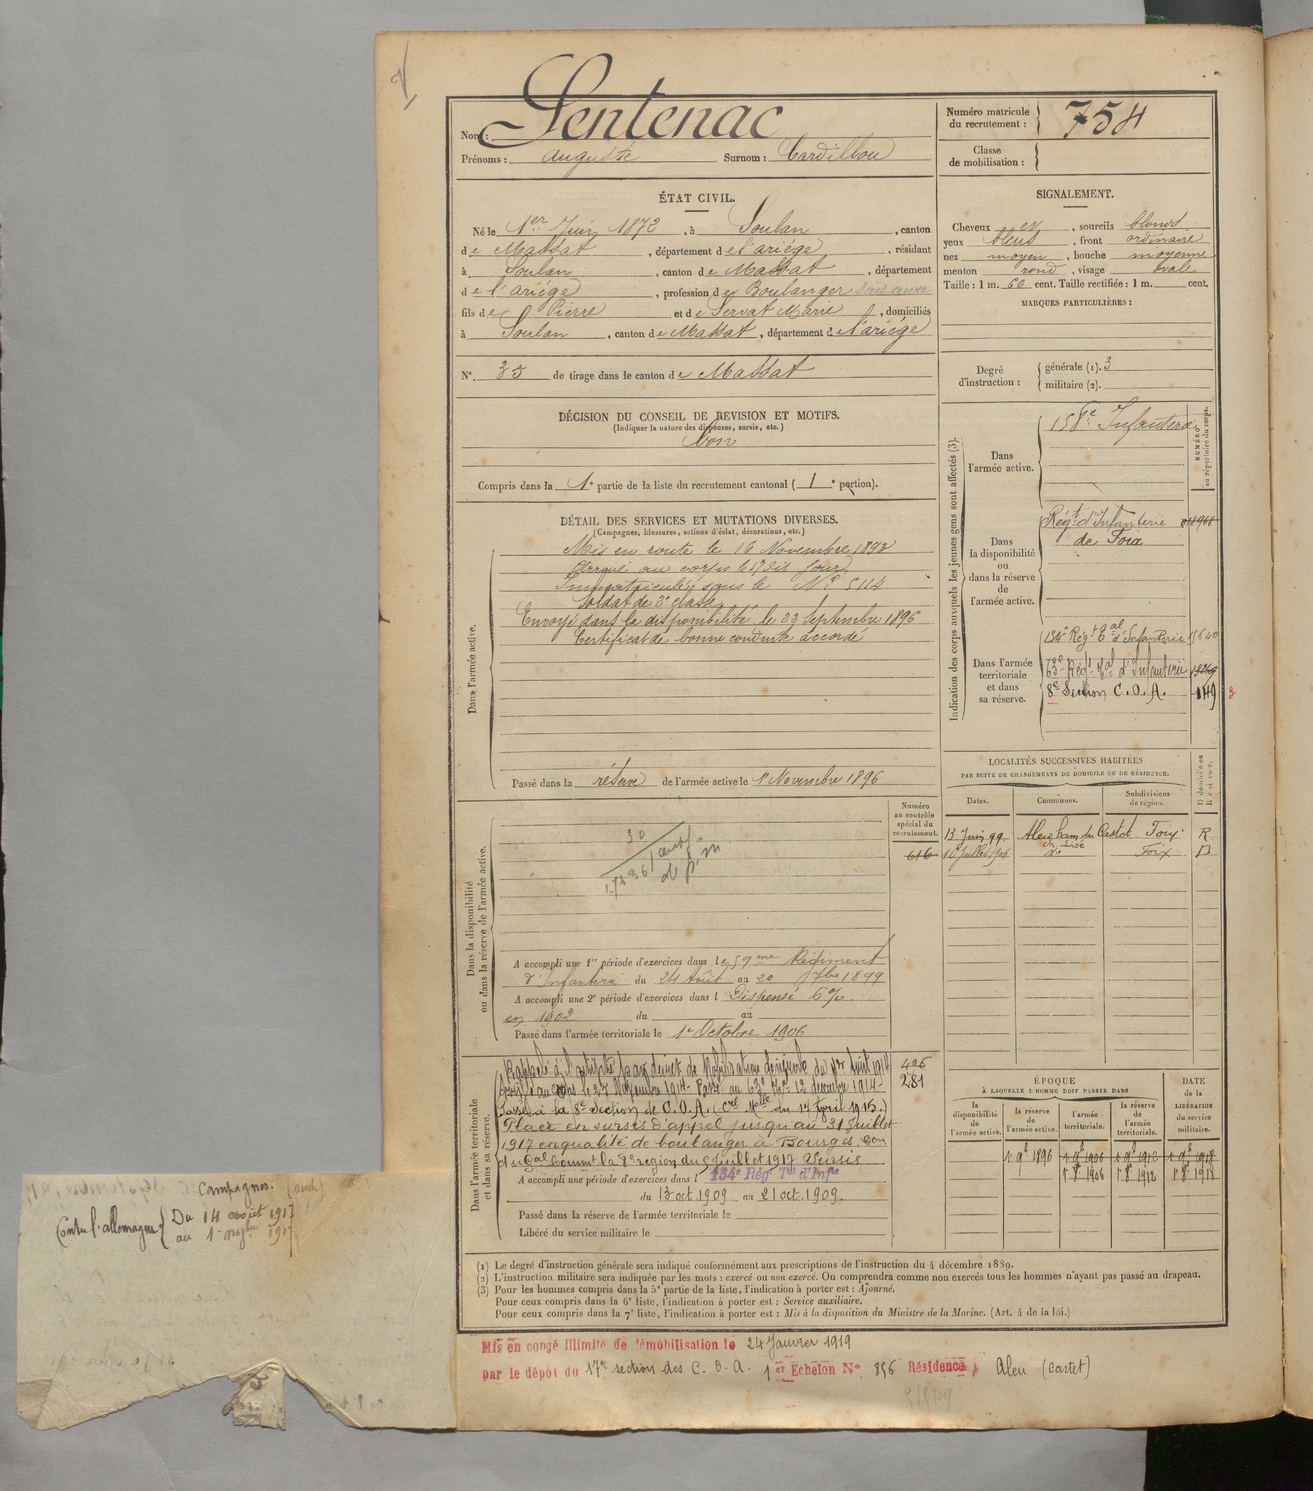 Nom : Sentenac
Prénoms : Auguste Surnom : Cardillou
Numéro matricule du recrutement : 754
Classe de mobilisation :
ÉTAT CIVIL.
Né le 1er Juin 1872, à Soulan, canton
de Massat, département de l'ariége, résidant
à Soulan, canton de Massat, département
de l'ariége, profession de Boulanger
fils de Pierre et de Servat Marie, domiciliés
à Soulan, canton de Massat, département de l'ariége
N° 35 de tirage dans le canton de Massat
SIGNALEMENT.
Cheveux et, sourcils blonds
yeux bleus, front ordinaire
nez moyen, bouche moyenne
menton rond, visage ovale
Taille : 1 m. 60 cent. Taille rectifiée : 1 m. cent.
MARQUES PARTICULIÈRES :
Degré d'instruction : générale (1). 3
militaire (2).
DÉCISION DU CONSEIL DE REVISION ET MOTIFS.
(Indiquer la nature des dispenses, sursis, etc.)
bon
Compris dans la 1e partie de la liste du recrutement cantonal (1e portion).
DÉTAIL DES SERVICES ET MUTATIONS DIVERSES.
(Campagnes, blessures, actions d'éclat, décorations, etc.)
Dans l'armée active.
Mis en route le 16 Novembre 1893
Arrivé au corps le dit jour
Immatriculé sous le N° 5114
Soldat de 2e classe
Envoyé dans la disponibilité le 23 Septembre 1896
Certificat de bonne conduite accordé
Passé dans la réserve de l'armée active le 1r Novembre 1896
Indication des corps auxquels les jeunes gens sont affectés (3).
NUMÉRO au répertoire du corps.
Dans l'armée active.
158e Infanterie
Dans la disponibilité ou dans la réserve de l'armée active.
Régt d'Infanterie
de Foix
Dans l'armée territoriale et dans sa réserve.
134e Régt Tal d'Infanterie
63e Régt Tal d'Infanterie
8e Section C.O.A. 149
LOCALITÉS SUCCESSIVES HABITÉES
PAR SUITE DE CHANGEMENTS DE DOMICILE OU DE RÉSIDENCE.
Dates. Communes. Subdivisions de région. Domicile ou Résidence.
13 Juin 99 Aleu Castet Foix R
10 Juillet 1906 do Foix D
Dans la disponibilité ou dans la réserve de l'armée active.
Numéro au contrôle spécial du recrutement.
616
30
A accompli une 1re période d'exercices dans le 59me Régiment
d'Infanterie du 24 Août au 20 7bre 1899
A accompli une 2e période d'exercices dans l Dispensé 6%
en 1902 du au
Passé dans l'armée territoriale le 1r Octobre 1906
Dans l'armée territoriale et dans sa réserve.
Rappelé à l'activité par décret de Mobilisation Générale du 1er Août 1914
Passé au 63e 12 décembre 1914
281
Passé à la 8e Section de C.O.A. (Crel Melle du 14 Avril 1915.)
Placé en sursis d'appel jusqu'au 31 Juillet
1917 en qualité de boulanger à Bourges. Don
du Gal Commt la 8e région du 5 Juillet 1917 Sursis
A accompli une période d'exercices dans l 134e Rég Tal d'Infie
du 13 oct. 1909 au 21 oct. 1909.
Passé dans la réserve de l'armée territoriale le
Libéré du service militaire le
ÉPOQUE
À LAQUELLE L'HOMME DOIT PASSER DANS
la disponibilité de l'armée active. la réserve de l'armée active. l'armée territoriale. la réserve de l'armée territoriale.
DATE de la LIBÉRATION du service militaire.
1r 9e 1896 1r 9e 1906 1r 9e 1912 1r 9e 1918
1r 8e 1906 1r 8e 1912 1r 8e 1918
(1) Le degré d'instruction générale sera indiqué conformément aux prescriptions de l'instruction du 4 décembre 1889.
(2) L'instruction militaire sera indiquée par les mots : exercé ou non exercé. On comprendra comme non exercés tous les hommes n'ayant pas passé au drapeau.
(3) Pour les hommes compris dans la 5e partie de la liste, l'indication à porter est : Ajourné.
Pour ceux compris dans la 6e liste, l'indication à porter est : Service auxiliaire.
Pour ceux compris dans la 7e liste, l'indication à porter est : Mis à la disposition du Ministre de la Marine. (Art. 4 de la loi.)
Mis en congé illimité de démobilisation le 24 Janvier 1919
par le dépôt du 17e section des C.O.A. 1er Echelon N° 896 Résidence) Aleu (Castet)
Campagnes.
Contre l'allemagne { Du 14 août 1914
au 1r 1917